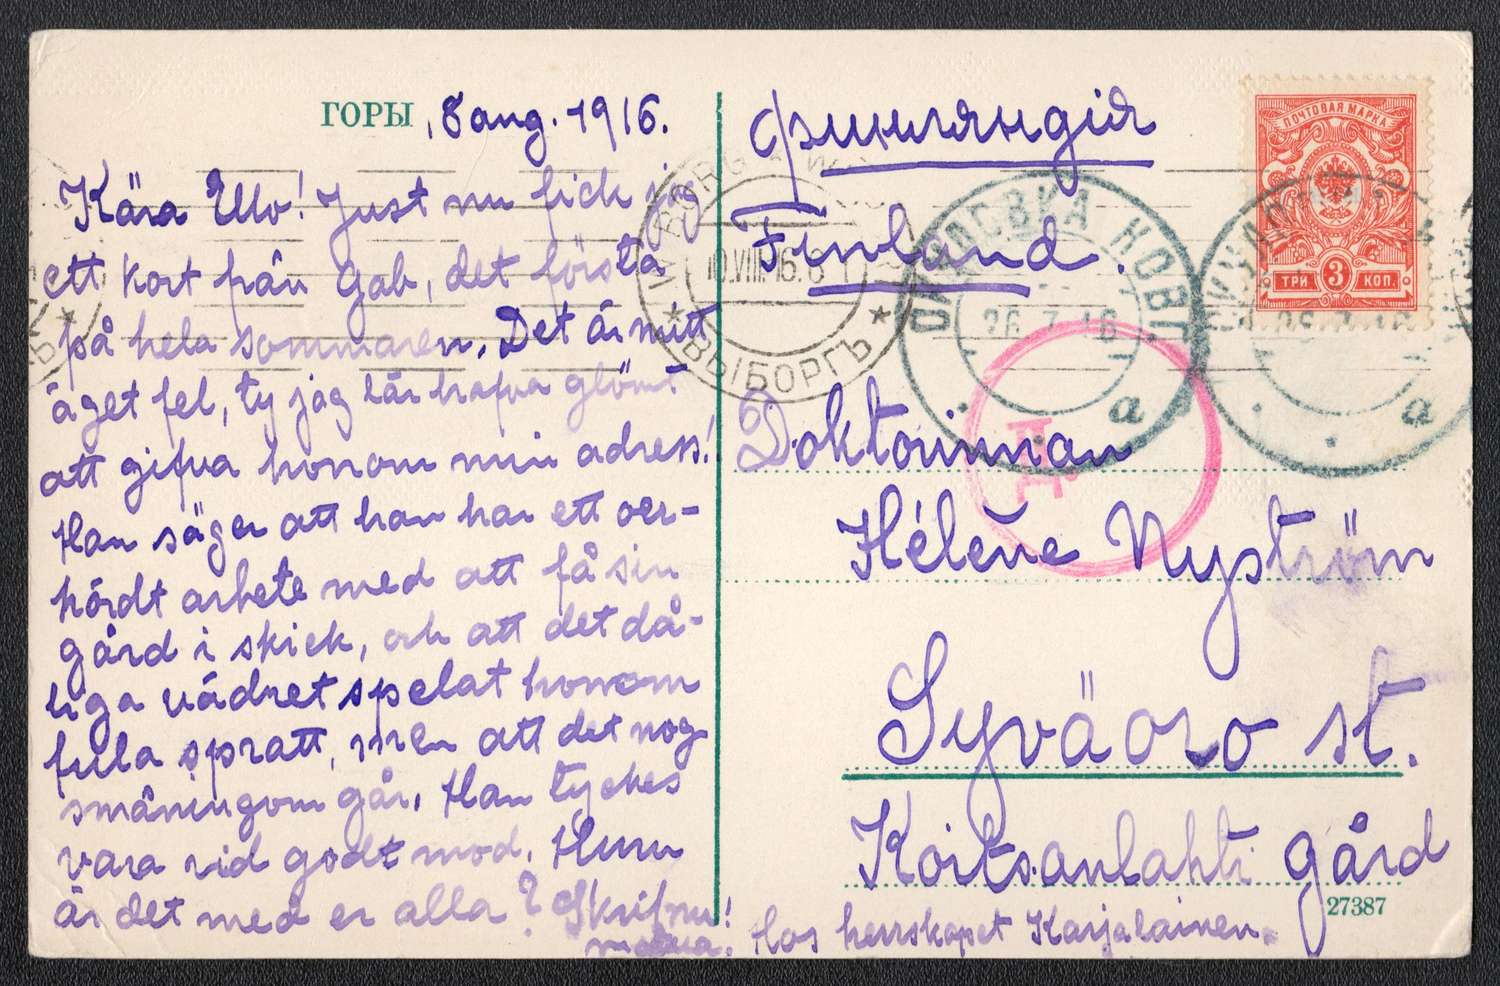 ГОРЫ, 8 aug. 1916.
Kära Ello! Just nu fick jag
ett kort från Gab, det första
på hela sommaren. Det är mitt
äget fel, ty jag lär hafva glömt
att gifva honom min adress!
Han säger att han har ett oer-
hördt arbete med att få sin
gård i skick, och att det då-
liga vädret spelat honom
fula spratt, men att det nog
småningom går. Han tyckes
vara vid godt mod. Huru
är det med er alla? Skrif nu!
Финляндія
Finland.
Doktorinnan
Hélène Nyström
Syväoro st.
Koitsanlahti gård
27387
Hos herrskapet Karjalainen.
ПОЧТОВАЯ МАРКА
ТРИ 3 КОП.
ВЫБОРГЪ
10.VIII.16.8
ОКУЛОВКА НОВГ.
26.7.16
а
Д.
а